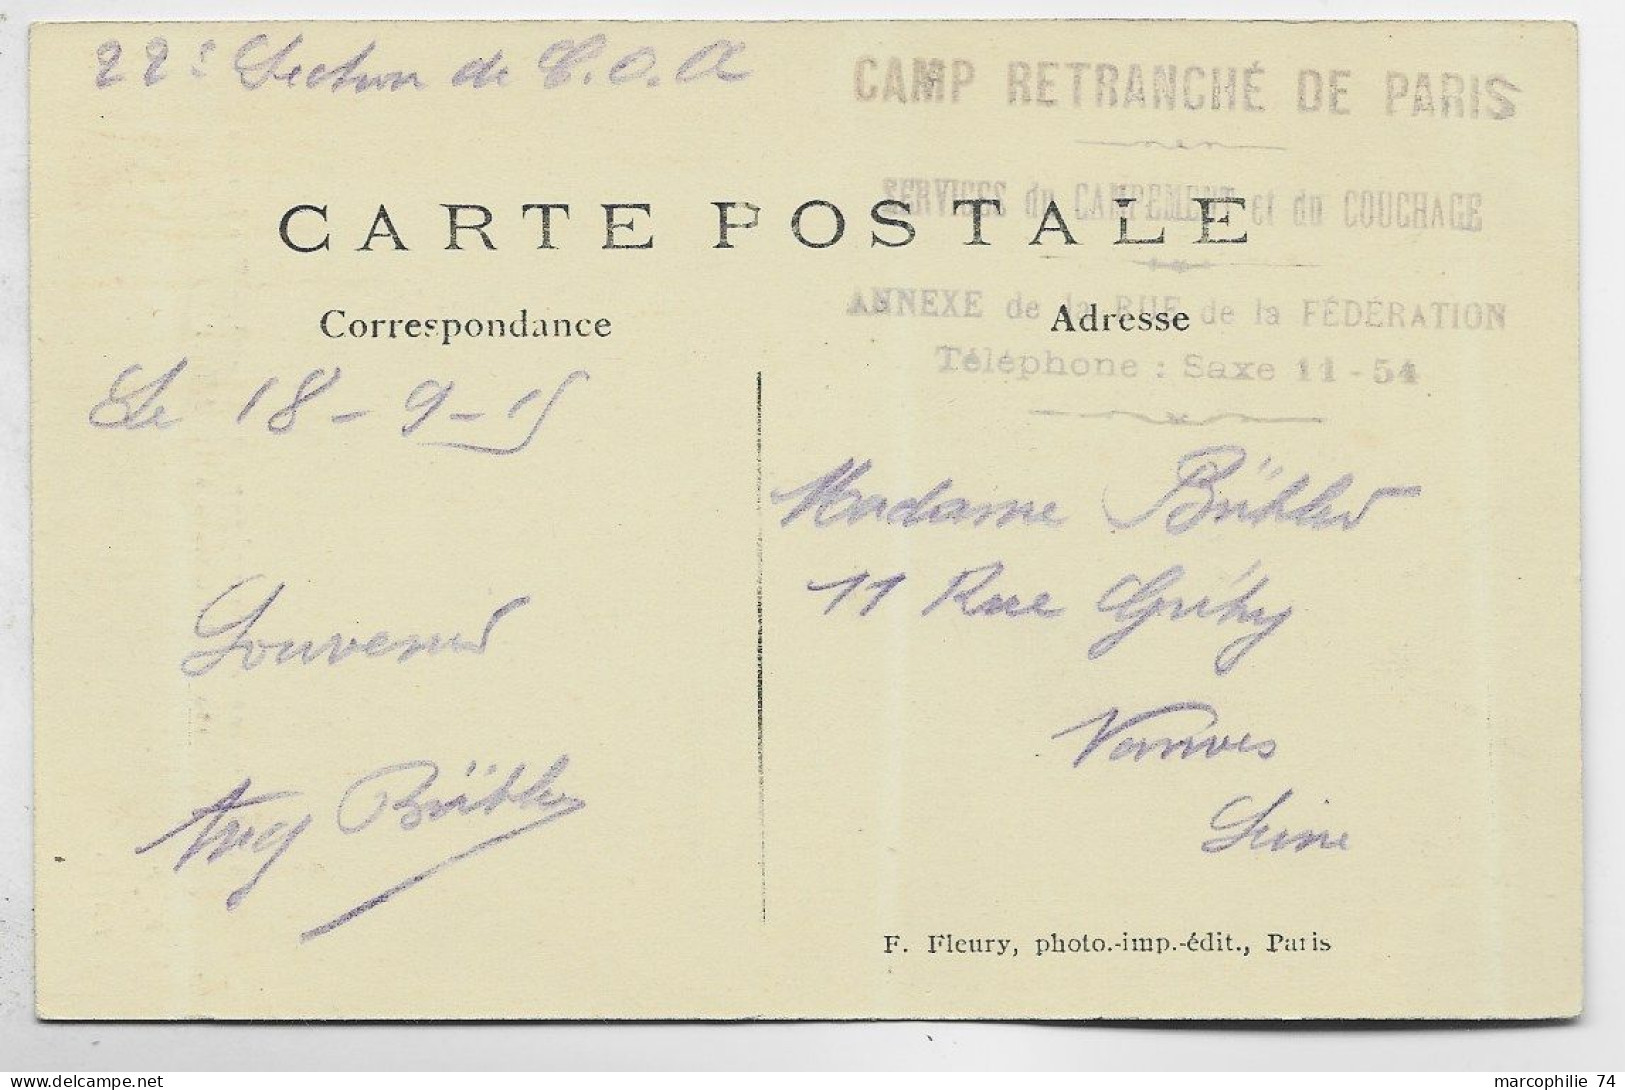 22e Section de C.O.A
CAMP RETRANCHÉ DE PARIS
SERVICES du CAMPEMENT et du COUCHAGE
CARTE POSTALE
ANNEXE de la RUE de la FÉDÉRATION
Correspondance
Adresse
Téléphone : Saxe 11-54
Le 18-9-15
Madame Bühler
11 Rue
Souvenir
Vanves
Aug Bühler
Seine
F. Fleury, photo.-imp.-édit., Paris
marcophilie 74